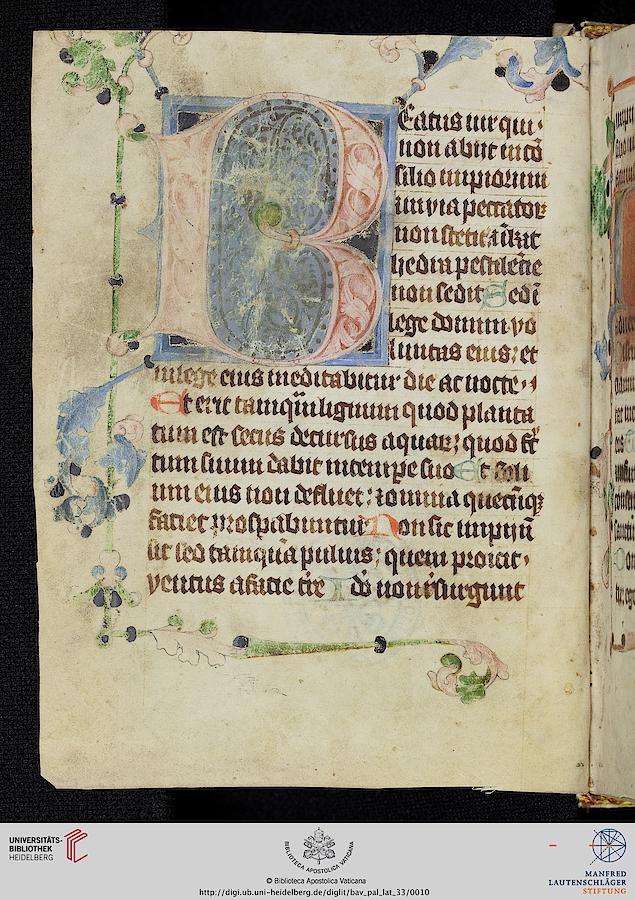 Beatus uir qui
non abijt in cō
silio impiorum
in via peccatoꝝ
non stetit, ⁊ ī kat
hedra pestilēcie
non sedit Sed ī
lege domini vo
luntas eius: et
in lege eius meditabitur die ac nocte
Et erit tamqͣm lignum quod planta
tum est secus decursus aquaꝝ: quod fͨt
tum suum dabit in tempe suo Et foli
um eius non defluet: ⁊ omnia quecūqꝫ
faciet prospabuntur Non sic impij nō
sic sed tamquā puluis: quem proicit
ventus a facie tr̄e Ido nō resurgunt
UNIVERSITÄTS-
BIBLIOTHEK
HEIDELBERG
BIBLIOTHECA APOSTOLICA VATICANA
© Biblioteca Apostolica Vaticana
http://digi.ub.uni-heidelberg.de/diglit/bav_pal_lat_33/0010
MANFRED
LAUTENSCHLÄGER
STIFTUNG